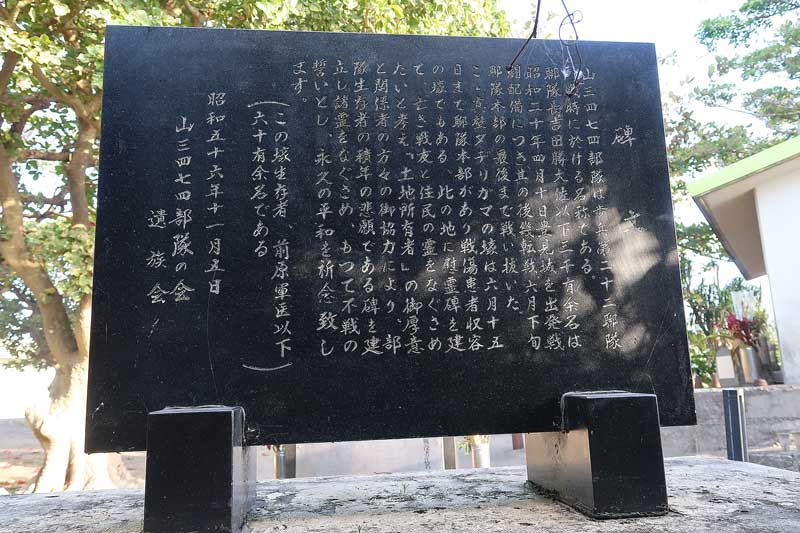 碑文
山三四七四部隊は歩兵第二十二聯隊
の戦時に於ける名称である。
聯隊長吉田勝大佐以下三千有余名は
昭和二十年四月十日豊見城を出発戦
闘配備につき其の後幾転戦六月下旬
聯隊本部の最後まで戦い抜いた。
こゝ真壁ヌチリガマの壕は六月十五
日まで聯隊本部があり戦傷患者収容
の壕でもある、此の地に慰霊碑を建
て、亡き戦友と住民の霊をなぐさめ
たいと考え、「土地所有者」の御厚意
と関係者の方々の御協力により、部
隊生存者の積年の悲願である碑を建
立し諸霊をなぐさめ、もつて不戦の
誓いとし、永久の平和を祈念致し
ます。
(この壕生存者、前原軍医以下
六十有余名である)
昭和五十六年十一月五日
山三四七四部隊の会
遺族会